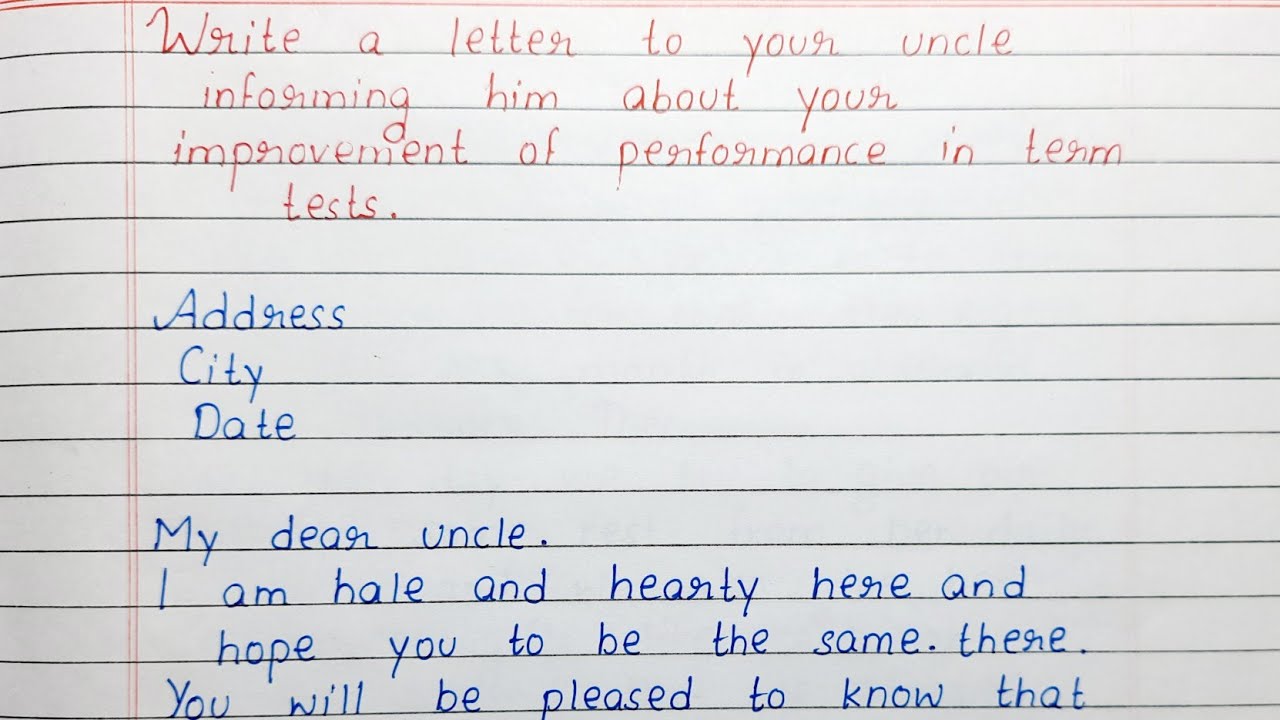 Write a letter to your uncle
informing him about your
improvement of performance in term
tests.
Address
City
Date
My dear uncle.
I am hale and hearty here and
hope you to be the same. there.
You will be pleased to know that